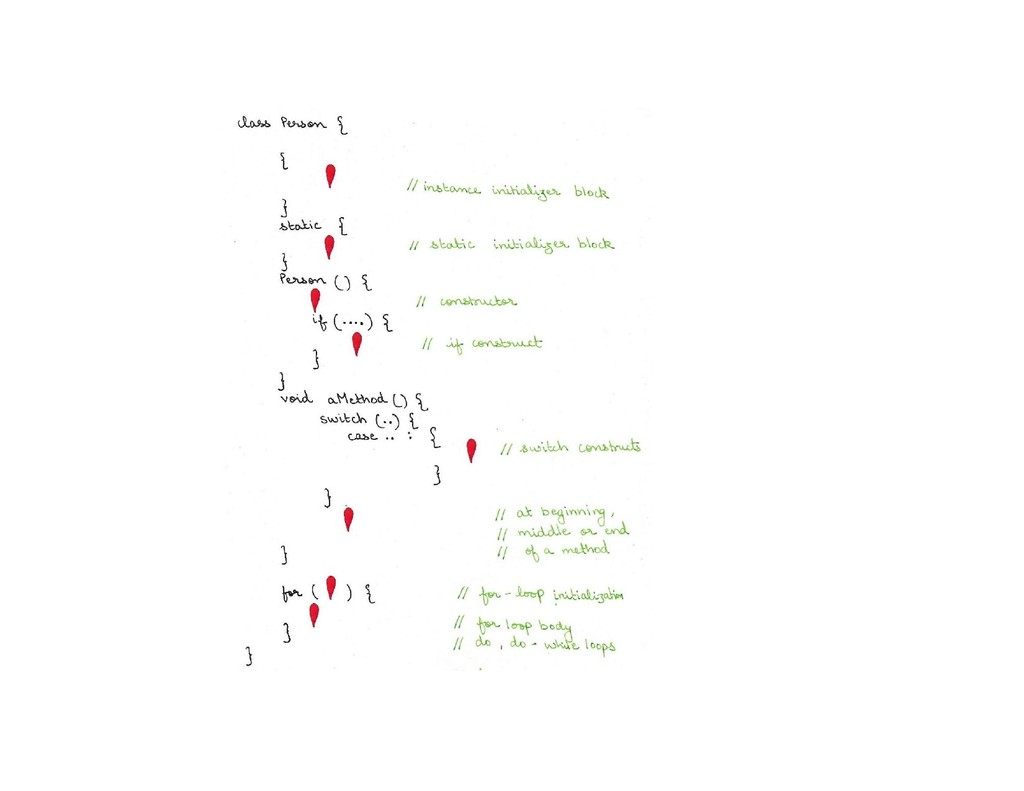 class Person {
{
// instance initializer block
}
static {
// static initializer block
}
Person () {
// constructor
if (....) {
// if construct
}
}
void aMethod () {
switch (..) {
case .. : {
// switch constructs
}
}
// at beginning,
// middle or end
// of a method
}
for ( ) {
// for-loop initialization
// for loop body
}
// do, do-while loops
}